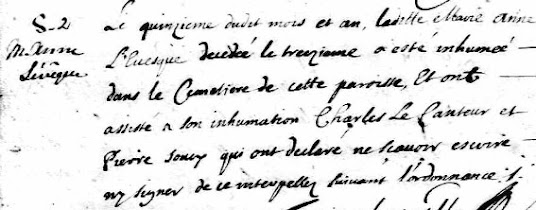 S-2
M. Anne
Lévéque
Le quinzieme dudit mois et an, ladite Marie Anne
L'Evesque decedée le treizieme a esté inhumeé
dans le Cemetiere de cette paroisse, Et ont
assisté a son inhumation Charles Le Canteur et
Pierre Soucy qui ont declaré ne scavoir escrire
ny signer de ce interpellez suivant l'ordonnance